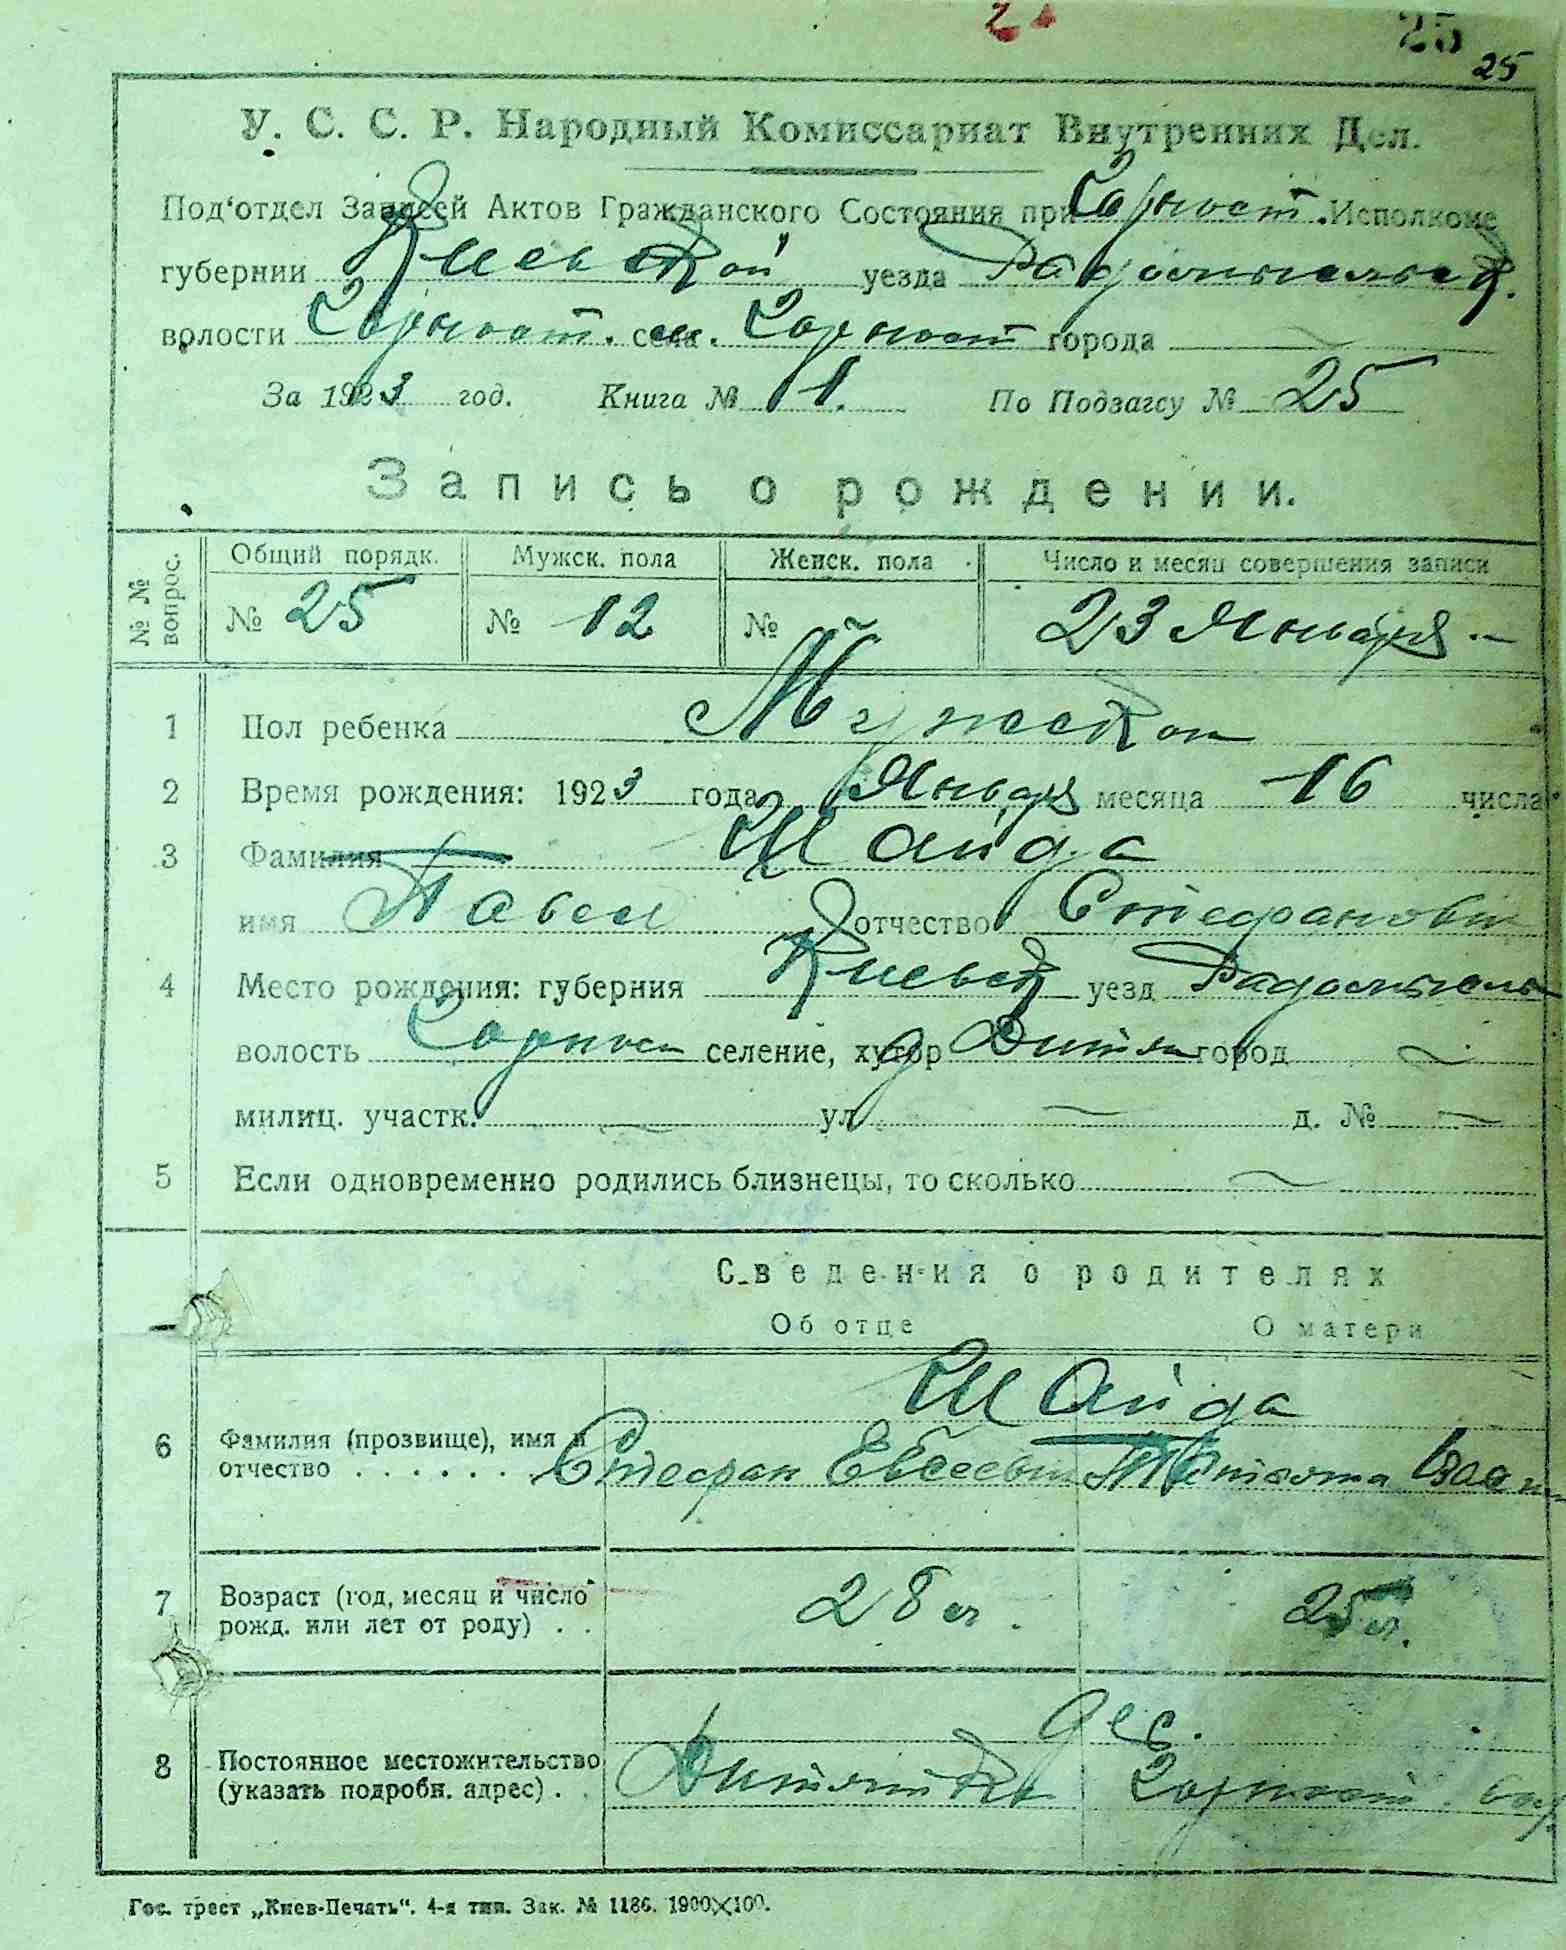 25
25
У. С. С. Р. Народный Комиссариат Внутренних Дел.
Под‘отдел Записей Актов Гражданского Состояния при Горност. Исполкоме
губернии Киевской уезда Радомысльск.
волости Горност. села м. Горност города
За 1923 год. Книга № 1. По Подзагсу № 25
Запись о рождении.
№№ вопрос. Общий порядк. Мужск. пола Женск. пола Число и месяц совершения записи
№ 25 № 12 № 23 Января
1 Пол ребенка Мужской
2 Время рождения: 1923 года Января месяца 16 числа
3 Фамилия Шайда
имя Павел отчество Стефанович
4 Место рождения: губерния Киевск уезд Радомысль
волость Горност селение, хутор д Дитят город
милиц. участк. ул. д. №
5 Если одновременно родились близнецы, то сколько
Сведения о родителях
Об отце О матери
Шайда
6 Фамилия (прозвище), имя и
отчество . . . . . . . Стефан Евсеевич
7 Возраст (год, месяц и число
рожд. или лет от роду) . . 28 л. 25 л.
дер.
8 Постоянное местожительство
(указать подробн. адрес) . . Дитятки Горност. вол.
Гос. трест „Киев-Печать“. 4-я тип. Зак. № 1186. 1900×100.